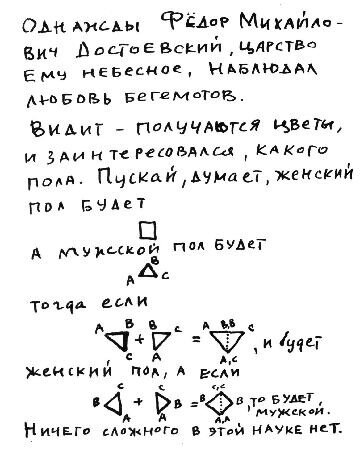 Однажды Фёдор Михайло-
вич Достоевский, царство
Ему небесное, наблюдал
любовь бегемотов.
Видит - получаются цветы,
и заинтересовался, какого
пола. Пускай, думает, женский
пол будет
А мужсской пол будет
B
A C
тогда если
A B B C A B,B C
+ = , и будет
C A A,C
женский пол, а если
C C C,C
B + B = B B, то будет
A A A,A мужской.
Ничего сложного в этой науке нет.